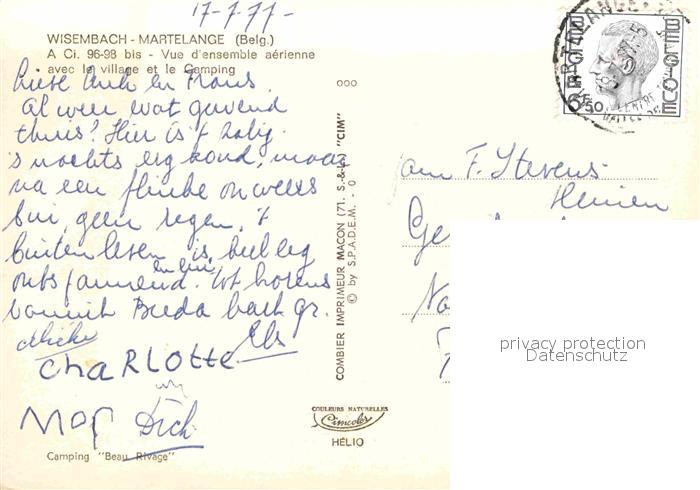 17-7-77-
WISEMBACH - MARTELANGE (Belg.)
A Ci. 96-98 bis - Vue d'ensemble aérienne
avec le village et le Camping
Lieve Ank en Frans.
Al weer wat gewend
thuis? Hier is 't zalig.
's nachts erg koud, maar
na een flinke onweers
bui, geen regen. 't
buiten leven is heel erg
ontspannend. Tot horens
vanuit Breda hart. gr.
Mieke Els
CHARLOTTE
Dick
Camping "Beau Rivage"
ooo
COMBIER IMPRIMEUR MACON (71. S.-&-L.) "CIM"
© by S.P.A.D.E.M. - 0
COULEURS NATURELLES
Cimcolor
HÉLIO
BELGIE
BELGIQUE
6F50
MARTELANGE
Fam F. Stevens-
Ge
privacy protection
Datenschutz